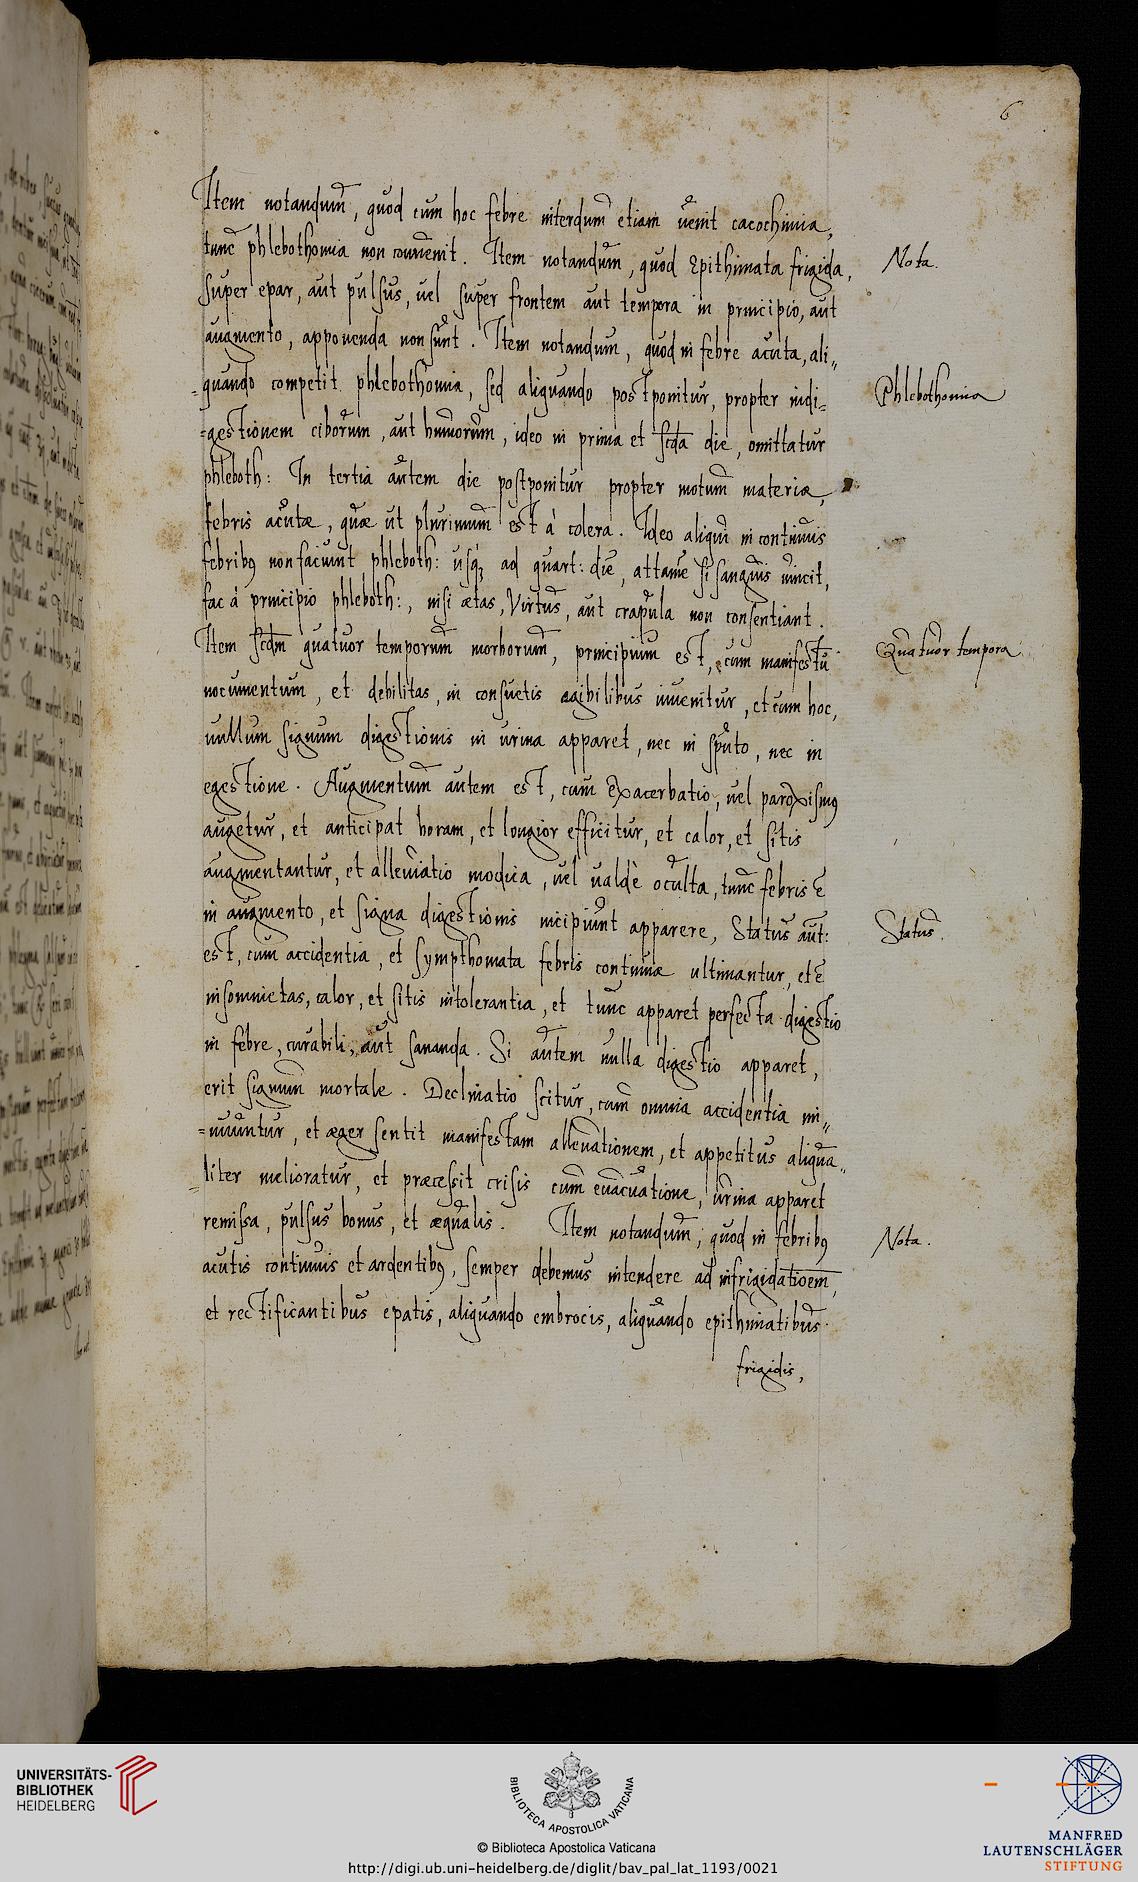 6
Item notandum, quod cum hoc febre interdum etiam uenit cacochimia,
tunc phlebothomia non conuenit. Item notandum, quod Epithimata frigida,
Nota.
super epar, aut pulsus, uel super frontem aut tempora in principio, aut
augmento, apponenda non sunt. Item notandum, quod in febre acuta, ali„
=quando competit phlebothomia, sed aliquando postponitur, propter indi=
Phlebothomia
=gestionem ciborum, aut humorum, ideo in prima et scda die, omittatur
phleboth: In tertia autem die postponitur propter motum materiæ,
febris acutæ, quæ ut plurimum est à colera. Ideo aliqui in continuis
febribꝰ non faciunt phleboth: usq; ad quart: die, attame si sanguis uincit,
fac à principio phleboth:, nisi ætas, Virtus, aut crapula non consentiant.
Item scdm quatuor temporum morborum, principium est, cum manifestu
Quatuor tempora
nocumentum, et debilitas, in consuetis agibilibus inuenitur, et cum hoc,
nullum signum digestionis in urina apparet, nec in sputo, nec in
egestione. Augmentum autem est, cum Exacerbatio, uel paroxismꝰ
augetur, et anticipat horam, et longior efficitur, et calor, et sitis
augmentantur, et alleuiatio modica, uel ualdè oculta, tunc febris ē
in augmento, et signa digestionis incipiunt apparere, Status aut:
Status.
est, cum accidentia, et sympthomata febris continuæ ultimantur, et ē
insomnietas, calor, et sitis intolerantia, et tunc apparet perfecta digestio
in febre, curabili, aut sananda. Si autem nulla digestio apparet,
erit signum mortale. Declinatio scitur, cum omnia accidentia mi„
=nuuntur, et æger sentit manifestam alleuationem, et appetitus aliqua„
=liter melioratur, et præcessit crisis cum euacuatione, urina apparet
remissa, pulsus bonus, et æqualis. Item notandum, quod in febribꝰ
Nota.
acutis continuis et ardentibꝰ, semper debemus intendere ad infrigidatioem,
et rectificantibus epatis, aliquando embrocis, aliquando epithimatibus.
frigidis,
UNIVERSITÄTS-
BIBLIOTHEK
HEIDELBERG
BIBLIOTECA APOSTOLICA VATICANA
© Biblioteca Apostolica Vaticana
http://digi.ub.uni-heidelberg.de/diglit/bav_pal_lat_1193/0021
MANFRED
LAUTENSCHLÄGER
STIFTUNG